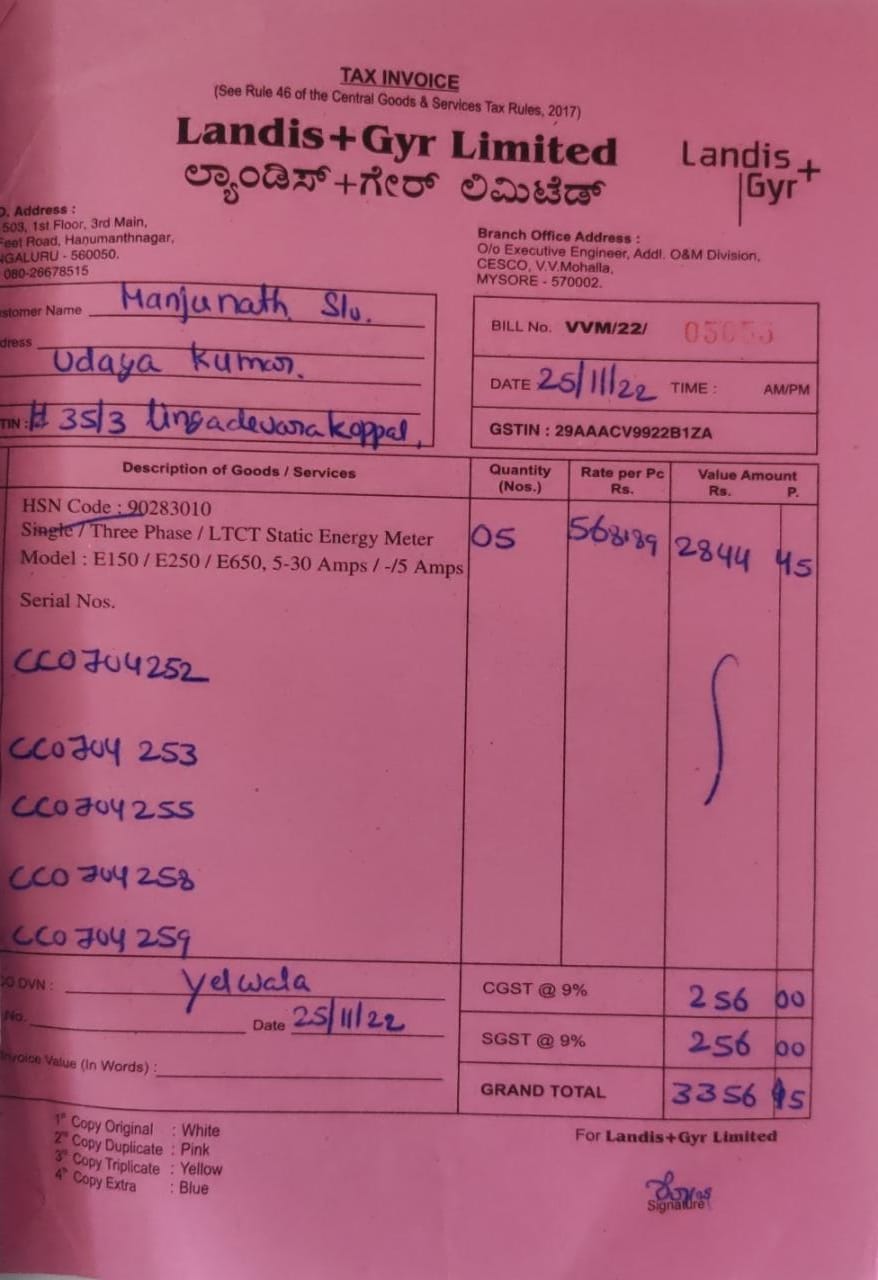 TAX INVOICE
(See Rule 46 of the Central Goods & Services Tax Rules, 2017)
Landis+Gyr Limited
ಲ್ಯಾಂಡಿಸ್+ಗೇರ್ ಲಿಮಿಟೆಡ್
Landis+
Gyr
Address :
503, 1st Floor, 3rd Main,
Feet Road, Hanumanthnagar,
NGALURU - 560050.
080-26678515
Branch Office Address :
O/o Executive Engineer, Addl. O&M Division,
CESCO, V.V.Mohalla,
MYSORE - 570002.
stomer Name Manjunath S/o.
dress Udaya Kumar.
TIN : # 35/3 Lingadevarakoppal,
BILL No. VVM/22/
DATE 25/11/22 TIME : AM/PM
GSTIN : 29AAACV9922B1ZA
Description of Goods / Services Quantity (Nos.) Rate per Pc Rs. Value Amount Rs. P.
HSN Code : 90283010
Single / Three Phase / LTCT Static Energy Meter 05 568.89 2844 45
Model : E150 / E250 / E650, 5-30 Amps / -/5 Amps
Serial Nos.
CC0704252
CC0704 253
CC0704255
CC0704258
CC0704 259
DVN : Yelwala
No. Date 25/11/22
Invoice Value (In Words) :
CGST @ 9% 256 00
SGST @ 9% 256 00
GRAND TOTAL 3356 45
1st Copy Original : White
2nd Copy Duplicate : Pink
3rd Copy Triplicate : Yellow
4th Copy Extra : Blue
For Landis+Gyr Limited
Signature